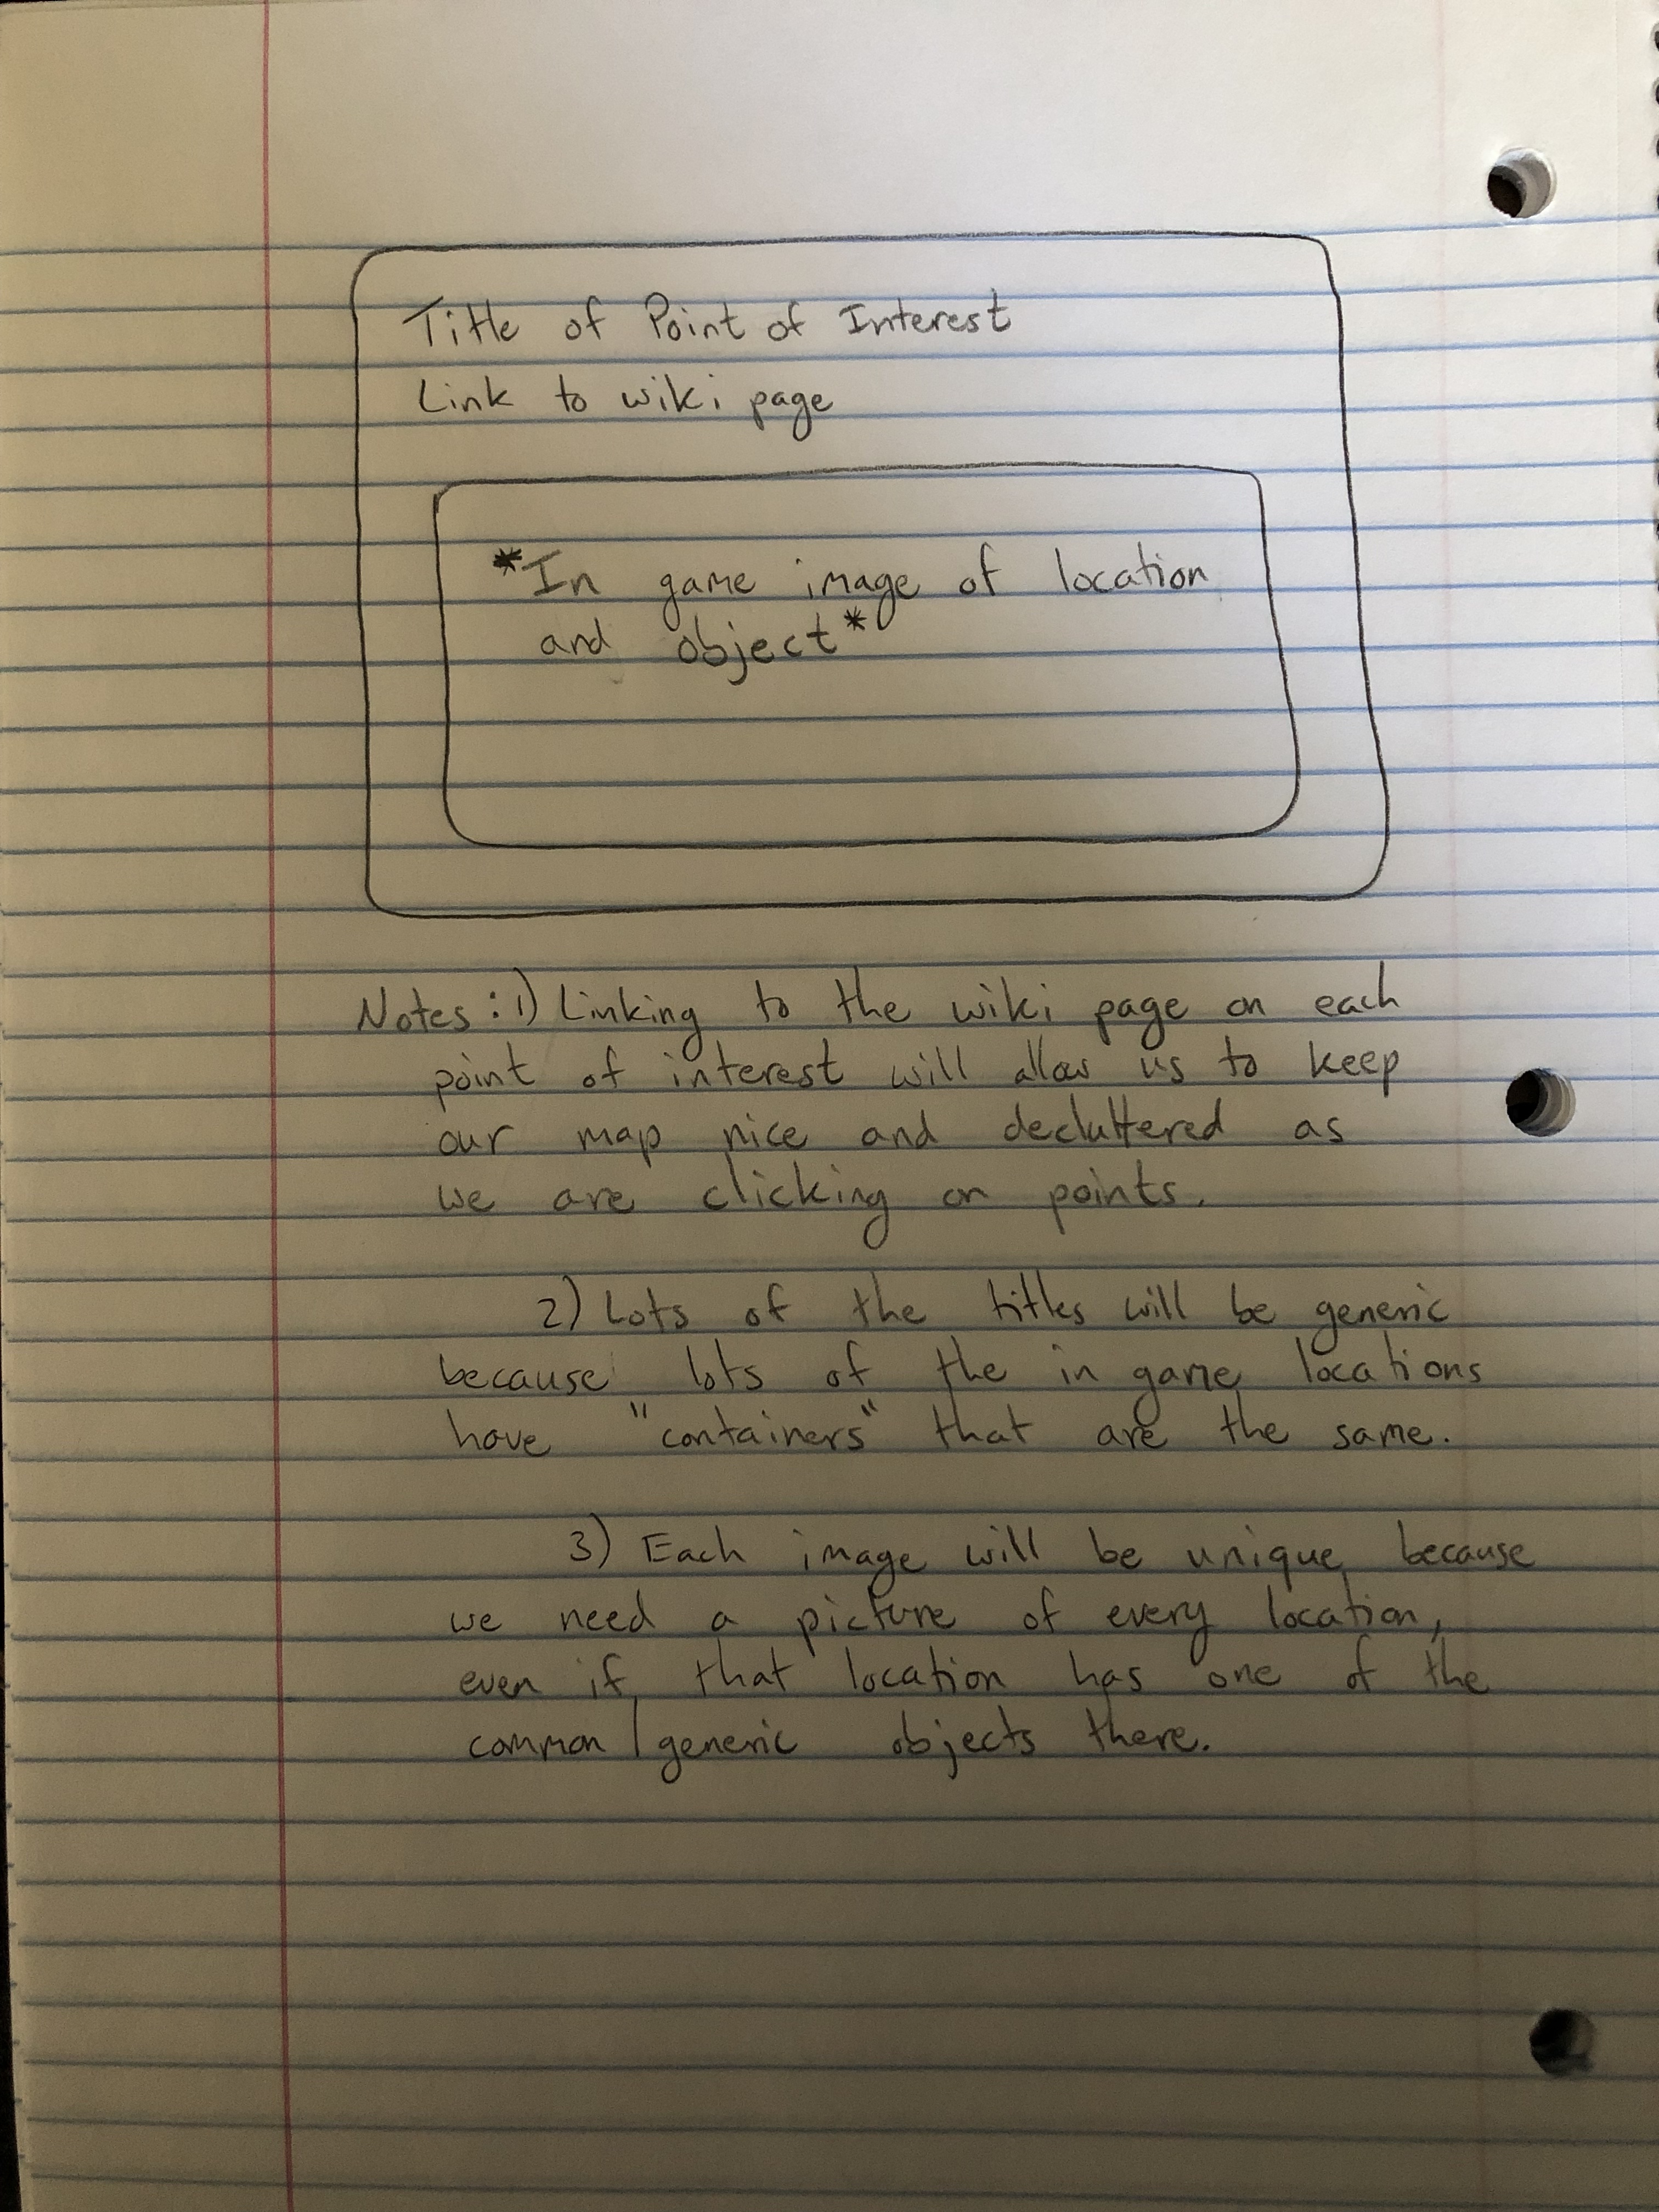 Title of Point of Interest
Link to wiki page
*In game image of location
and object*
Notes: 1) Linking to the wiki page on each
point of interest will allow us to keep
our map nice and decluttered as
we are clicking on points.
2) Lots of the titles will be generic
because lots of the in game locations
have "containers" that are the same.
3) Each image will be unique because
we need a picture of every location,
even if that location has one of the
common/generic objects there.